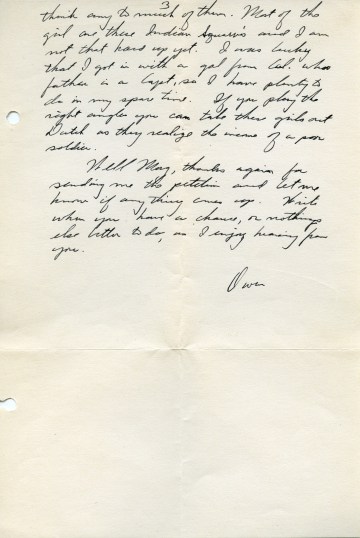 3
think any to much of them. Most of the
girl are these Indian Squawis and I am
not that hard up yet. I was lucky
that I got in with a gal from Cal. whos
father is a Capt, so I have plenty to
do in my spare time. If you play the
right angles you can take these girls out
Dutch as they realize the income of a poor
soldier.
Well Mary, thanks again for
sending me the petition and let me
know if any thing comes up. Write
when you have a chance, or nothing
else better to do, as I enjoy hearing from
you.
Owen